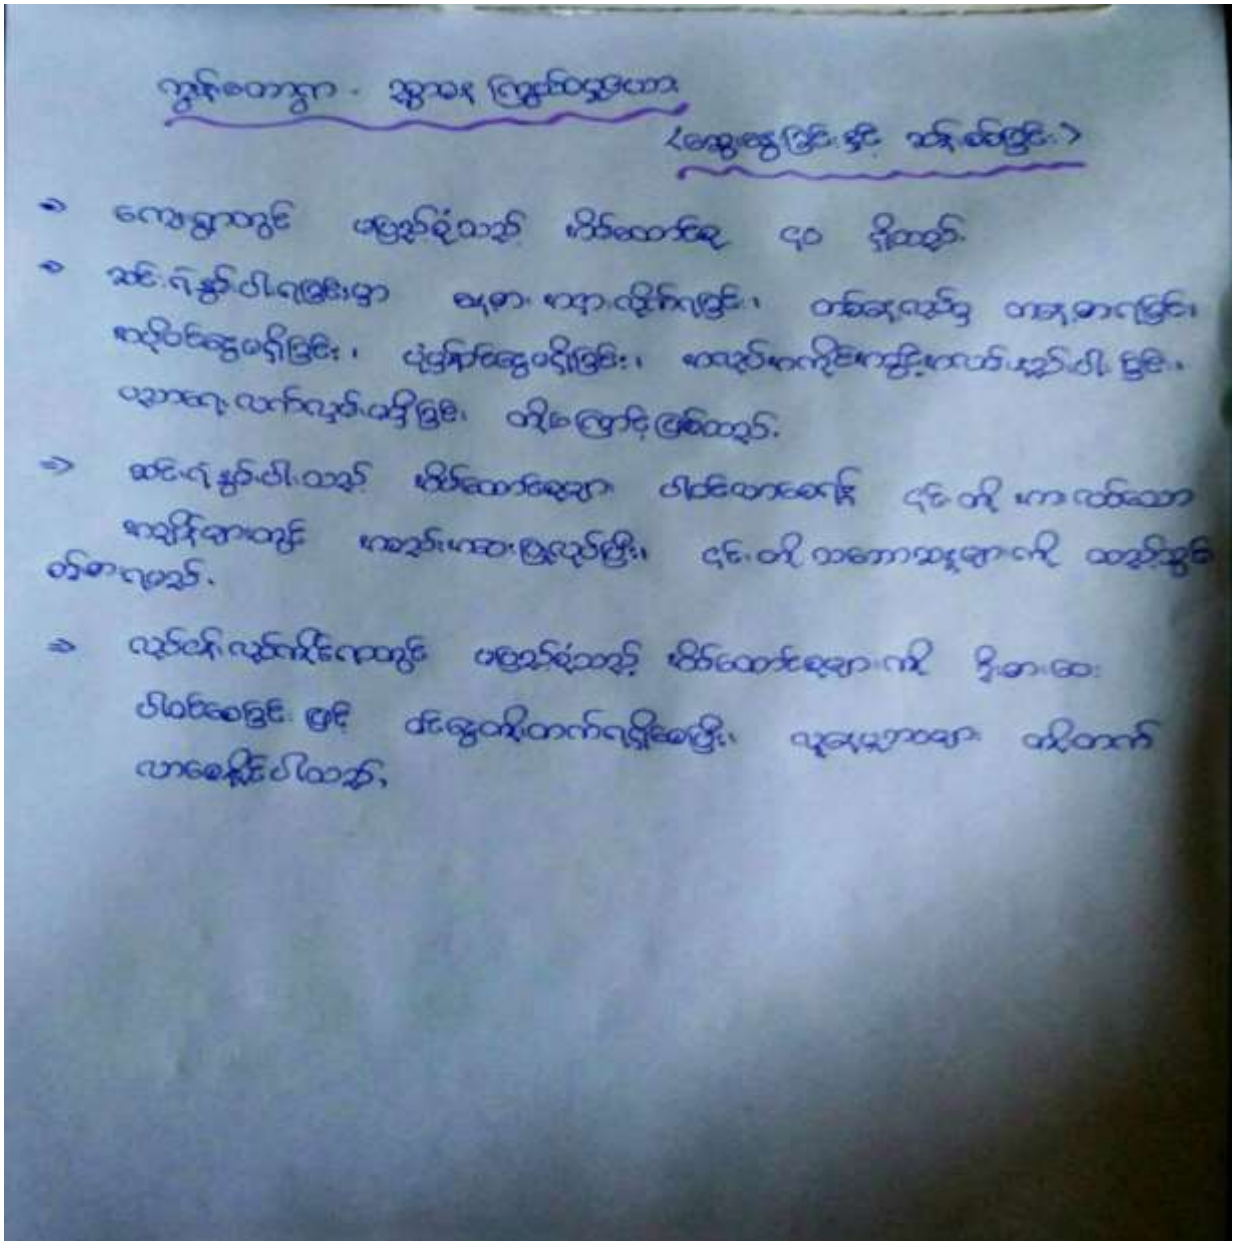 ကျွန်တောရွာ - ညွှာမန ကြွယ်ဝဌဒယား
<ဆွေးနွေးခြင်းနှင့် ဆန်းစစ်ခြင်း>
⇒ ကျေးရွာတွင် မပြည့်စုံသည့် အိမ်ထောင်စု ၄၀ ရှိသည်.
⇒ ဆင်းရဲနွမ်းပါးရခြင်းမှာ စားရခြင်း၊
အမြဲဝင်ငွေမရှိခြင်း၊ ပုံမှန်ဝင်ငွေမရှိခြင်း၊ အလုပ်အကိုင်အခွင့်အလမ်းနည်းပါးခြင်း၊
ပညာရေးလက်လှမ်းမမှီခြင်း တို့ကြောင့်ဖြစ်သည်.
⇒ ဆင်းရဲနွမ်းပါးသည့် အိမ်ထောင်စုများ ပါဝင်လာစေရန် ၎င်းတို့ အားလပ်သော
အချိန်များတွင် အစည်းအဝေးပြုလုပ်ပြီး၊ ၎င်းတို့သဘောဆန္ဒများကို ထည့်သွင်း
စဉ်းစားရမည်.
⇒ လုပ်ငန်းလုပ်ကိုင်ရာတွင် မပြည့်စုံသည့် အိမ်ထောင်စုများကို ဦးစားပေး
ပါဝင်စေခြင်းဖြင့် ဝင်ငွေတိုးတက်ရရှိစေပြီး၊ လူနေမှုဘဝများ တိုးတက်
လာစေနိုင်ပါသည်.